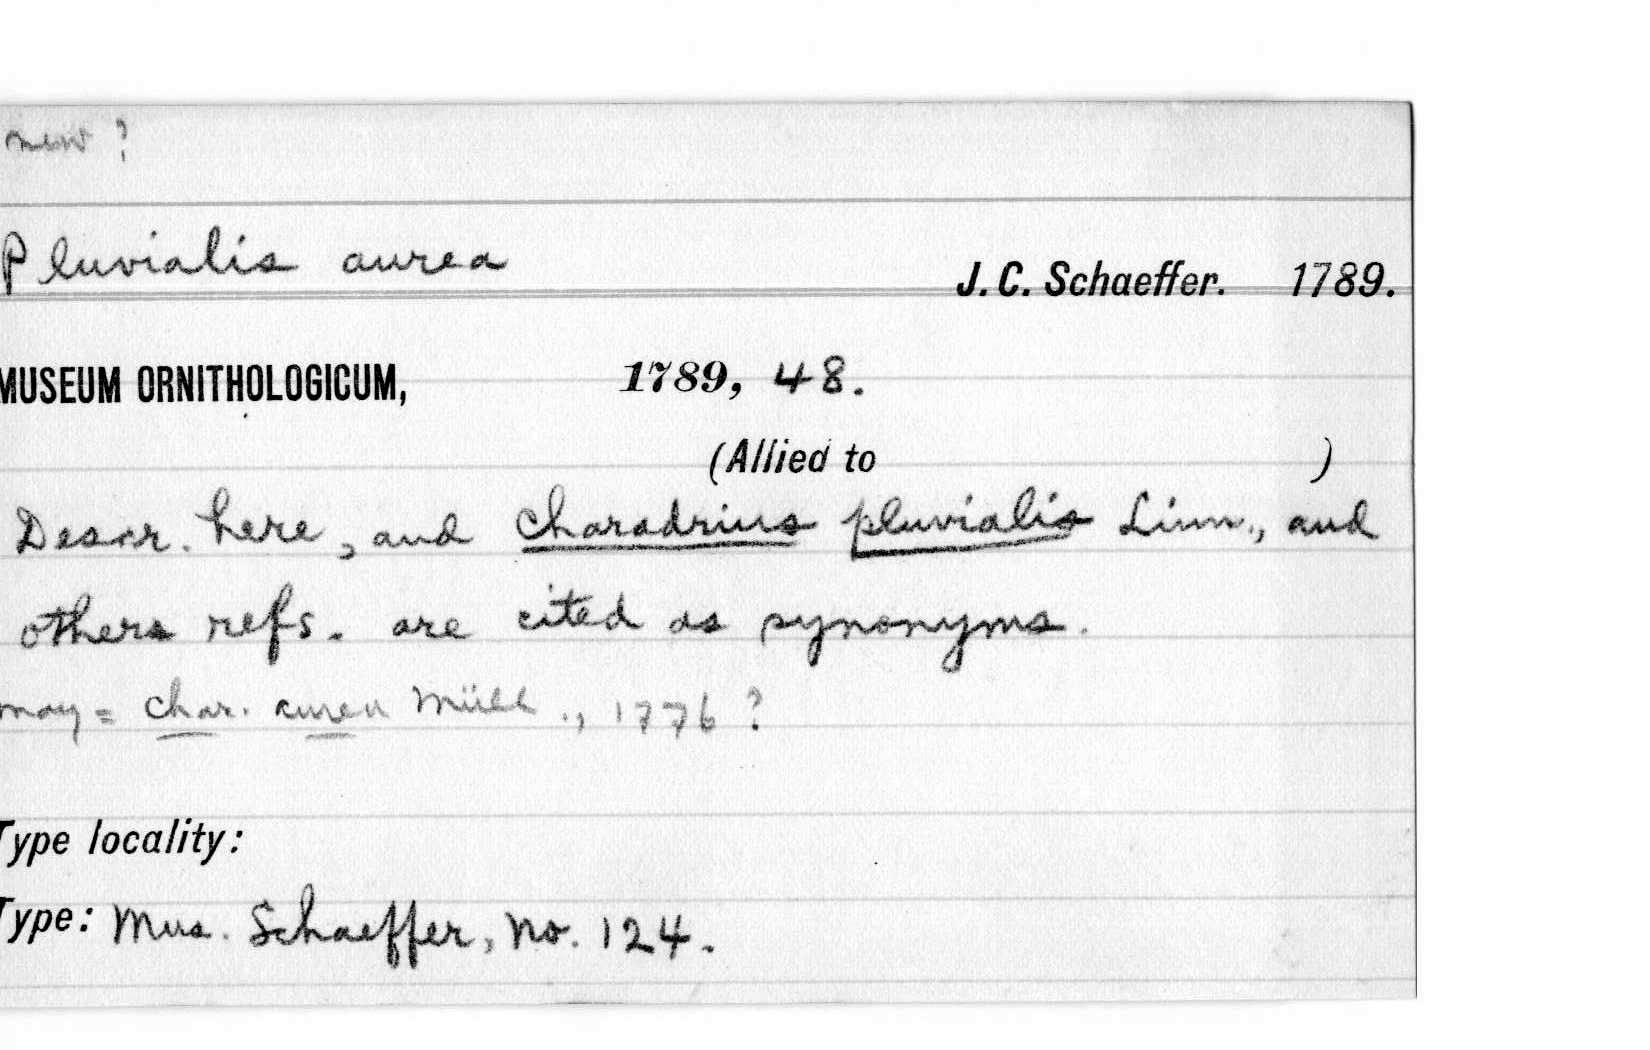 new ?
Pluvialis aurea
J. C. Schaeffer. 1789.
MUSEUM ORNITHOLOGICUM, 1789, 48.
(Allied to )
Descr. here, and Charadrius pluvialis Linn., and
others refs. are cited as synonyms.
may = Char. aurea Müll., 1776 ?
Type locality:
Type: Mus. Schaeffer, No. 124.